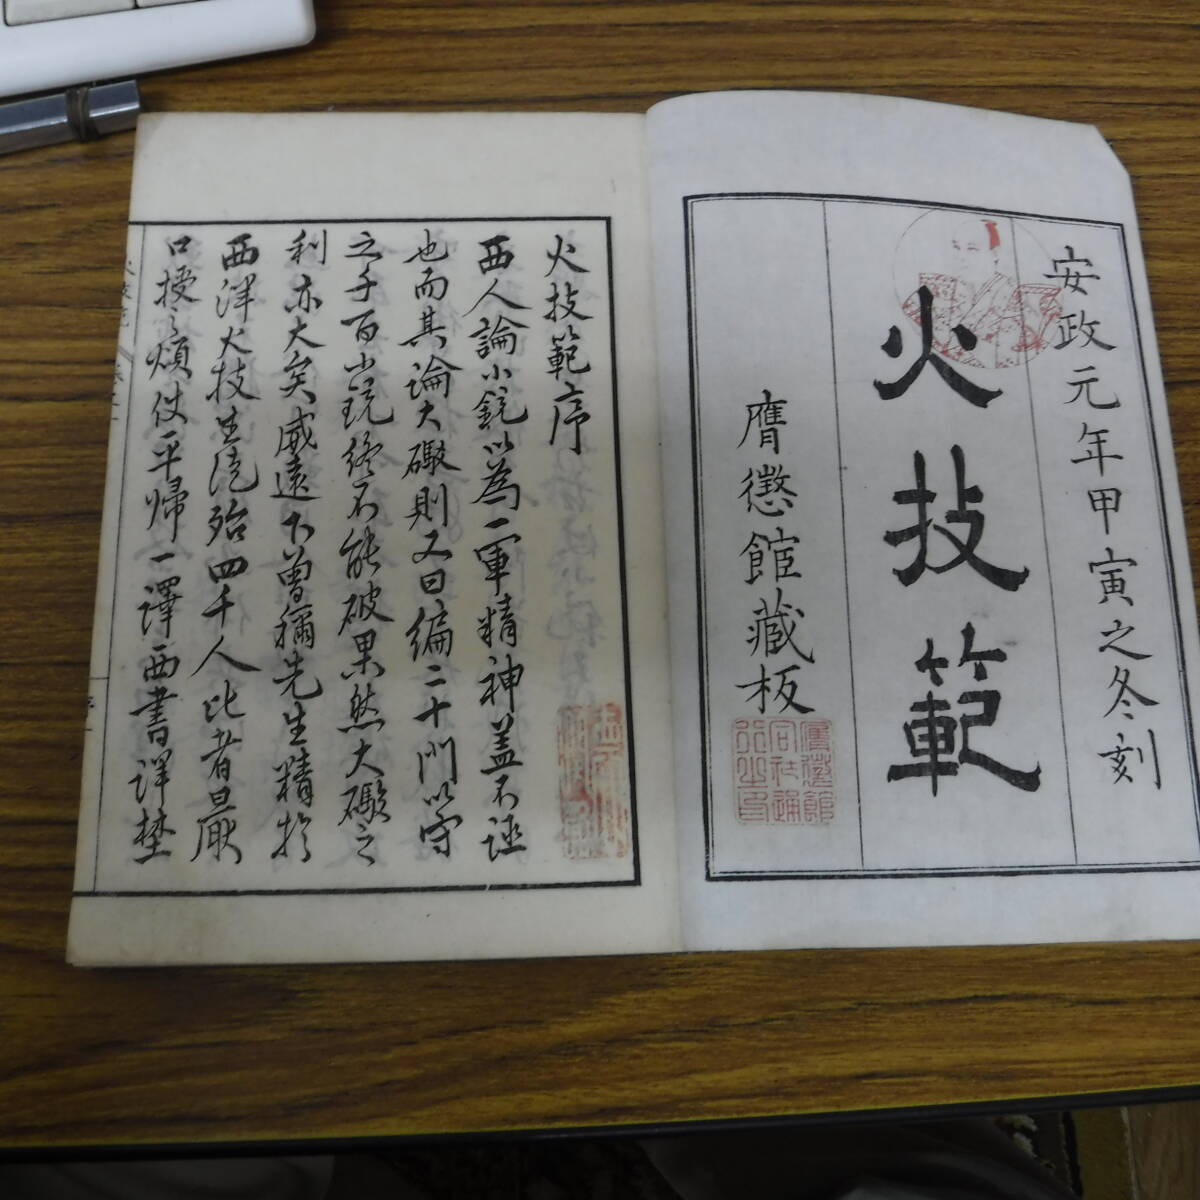 安政元年甲寅之冬刻
火技範
膺懲館藏板
火技範序
西人論小銃以為一軍精神盖不誣
也而其論大礮則又曰編二十門以守
之千百小銃終不能破果然大礮之
利亦大矣威遠下曽禰先生精於
西洋火技生徒殆四千人比者旦厭
口授之煩仗平歸一譯西書譯埜